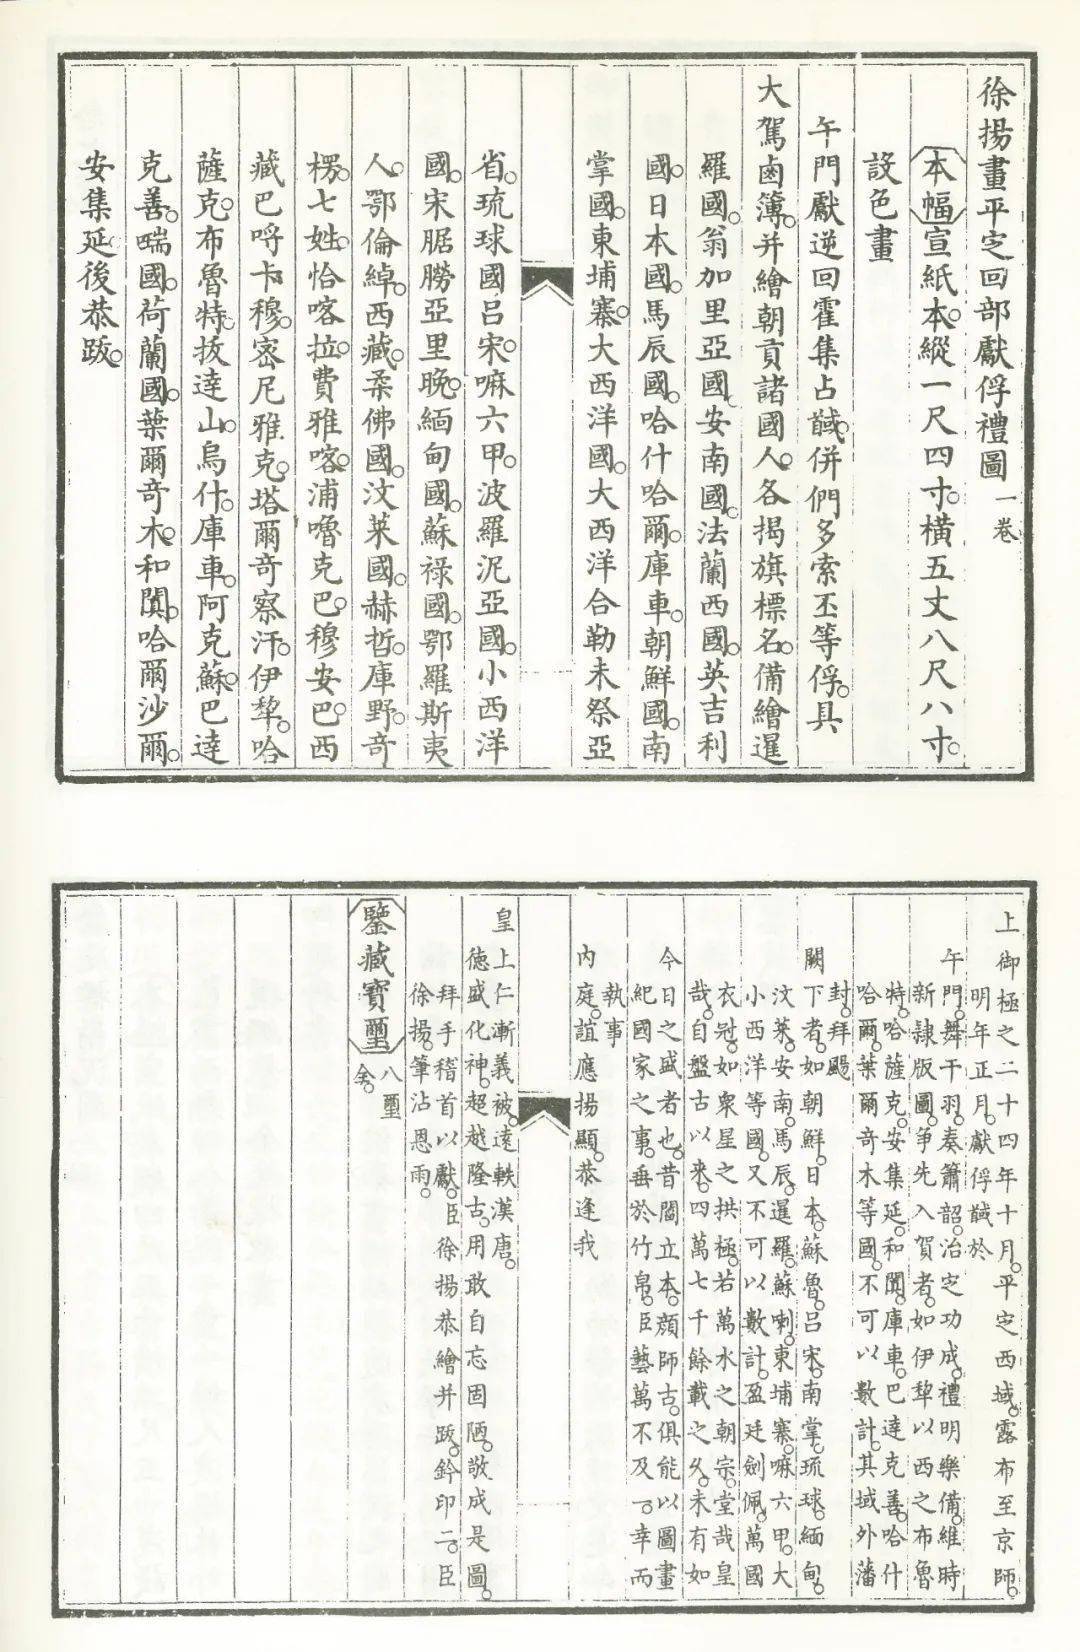 徐揚畫平定回部獻俘禮圖 一卷
本幅宣紙本。縱一尺四寸。橫五丈八尺八寸。
設色畫
午門獻逆回霍集占馘。併們多索丕等俘。具
大駕鹵簿。并繪朝貢諸國人。各揭旗標名。備繪暹
羅國。翁加里亞國。安南國。法蘭西國。英吉利
國。日本國。馬辰國。哈什哈爾。庫車。朝鮮國。南
掌國。東埔寨。大西洋國。大西洋合勒未祭亞
省。琉球國呂宋。嘛六甲。波羅泥亞國。小西洋
國。宋腒朥亞里晚。緬甸國。蘇祿國。鄂羅斯夷
人。鄂倫綽。西藏。柔佛國。汶萊國。赫哲。庫野。奇
楞。七姓。恰喀拉。費雅喀。浦嚕克巴。穆安巴。西
藏巴哷卡穆。密尼雅克。塔爾奇察汗。伊犂。哈
薩克。布魯特。拔達山。烏什。庫車。阿克蘇。巴達
克善。喘國。荷蘭國。葉爾奇木。和闐。哈爾沙爾。
安集延。後恭跋。
上御極之二十四年十月。平定西域。露布至京師。
明年正月。獻俘馘於
午門。舞干羽。奏簫韶。治定功成。禮明樂備。維時
新隷版圖。爭先入賀者。如伊犂以西之布魯
特。哈薩克。安集延。和闐。庫車。巴達克善。哈什
哈爾。葉爾奇木等國。不可以數計。其域外藩
封。拜颺
闕下者。如朝鮮。日本。蘇魯。呂宋。南掌。琉球。緬甸。
汶萊。安南。馬辰。暹羅。蘇喇。東埔寨。嘛六甲。大
小西洋等國。又不可以數計。盈廷劍佩。萬國
衣冠。如衆星之拱極。若萬水之朝宗。堂哉皇
哉。自盤古以來。四萬七千餘載之久。未有如
今日之盛者也。昔閻立本。顏師古。俱能以圖畫
紀國家之事。垂於竹帛。臣藝萬不及一。幸而
執事
內庭。誼應揚顯。恭逢我
皇上仁漸義被。遠軼漢唐。
德盛化神。超越隆古。用敢自忘固陋。敬成是圖。
拜手稽首以獻。臣徐揚恭繪并跋。鈐印二。臣
徐揚。筆沾恩雨。
鑒藏寶璽 八璽
全。